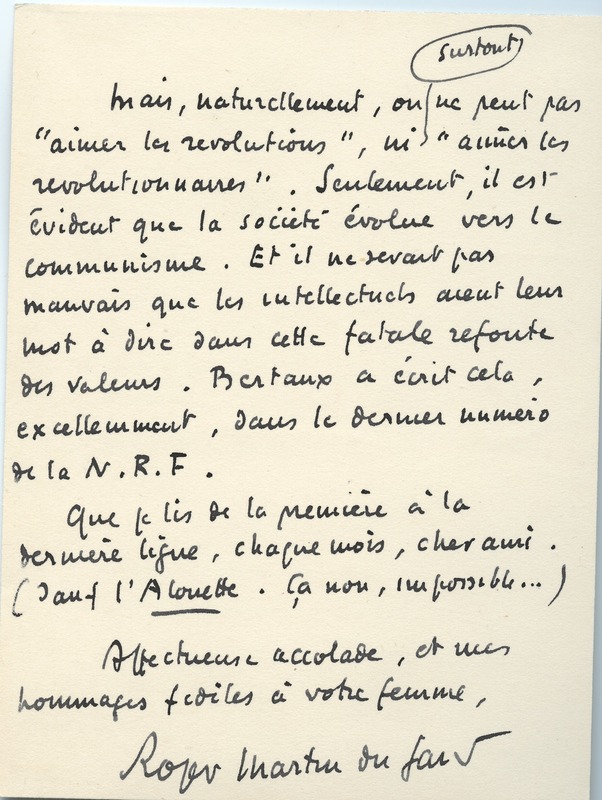 surtout
Mais, naturellement, on ne peut pas
"aimer les revolutions", ni "aimer les
revolutionnaires". Seulement, il est
évident que la société évolue vers le
communisme. Et il ne serait pas
mauvais que les intellectuels aient leur
mot à dire dans cette fatale refonte
des valeurs. Bertaux a écrit cela,
excellemment, dans le dernier numéro
de la N.R.F.
Que je lis de la première à la
dernière ligne, chaque mois, cher ami.
(Sauf l'Alouette. Ça non, impossible...)
Affectueuse accolade, et mes
hommages fidèles à votre femme,
Roger Martin du Gard